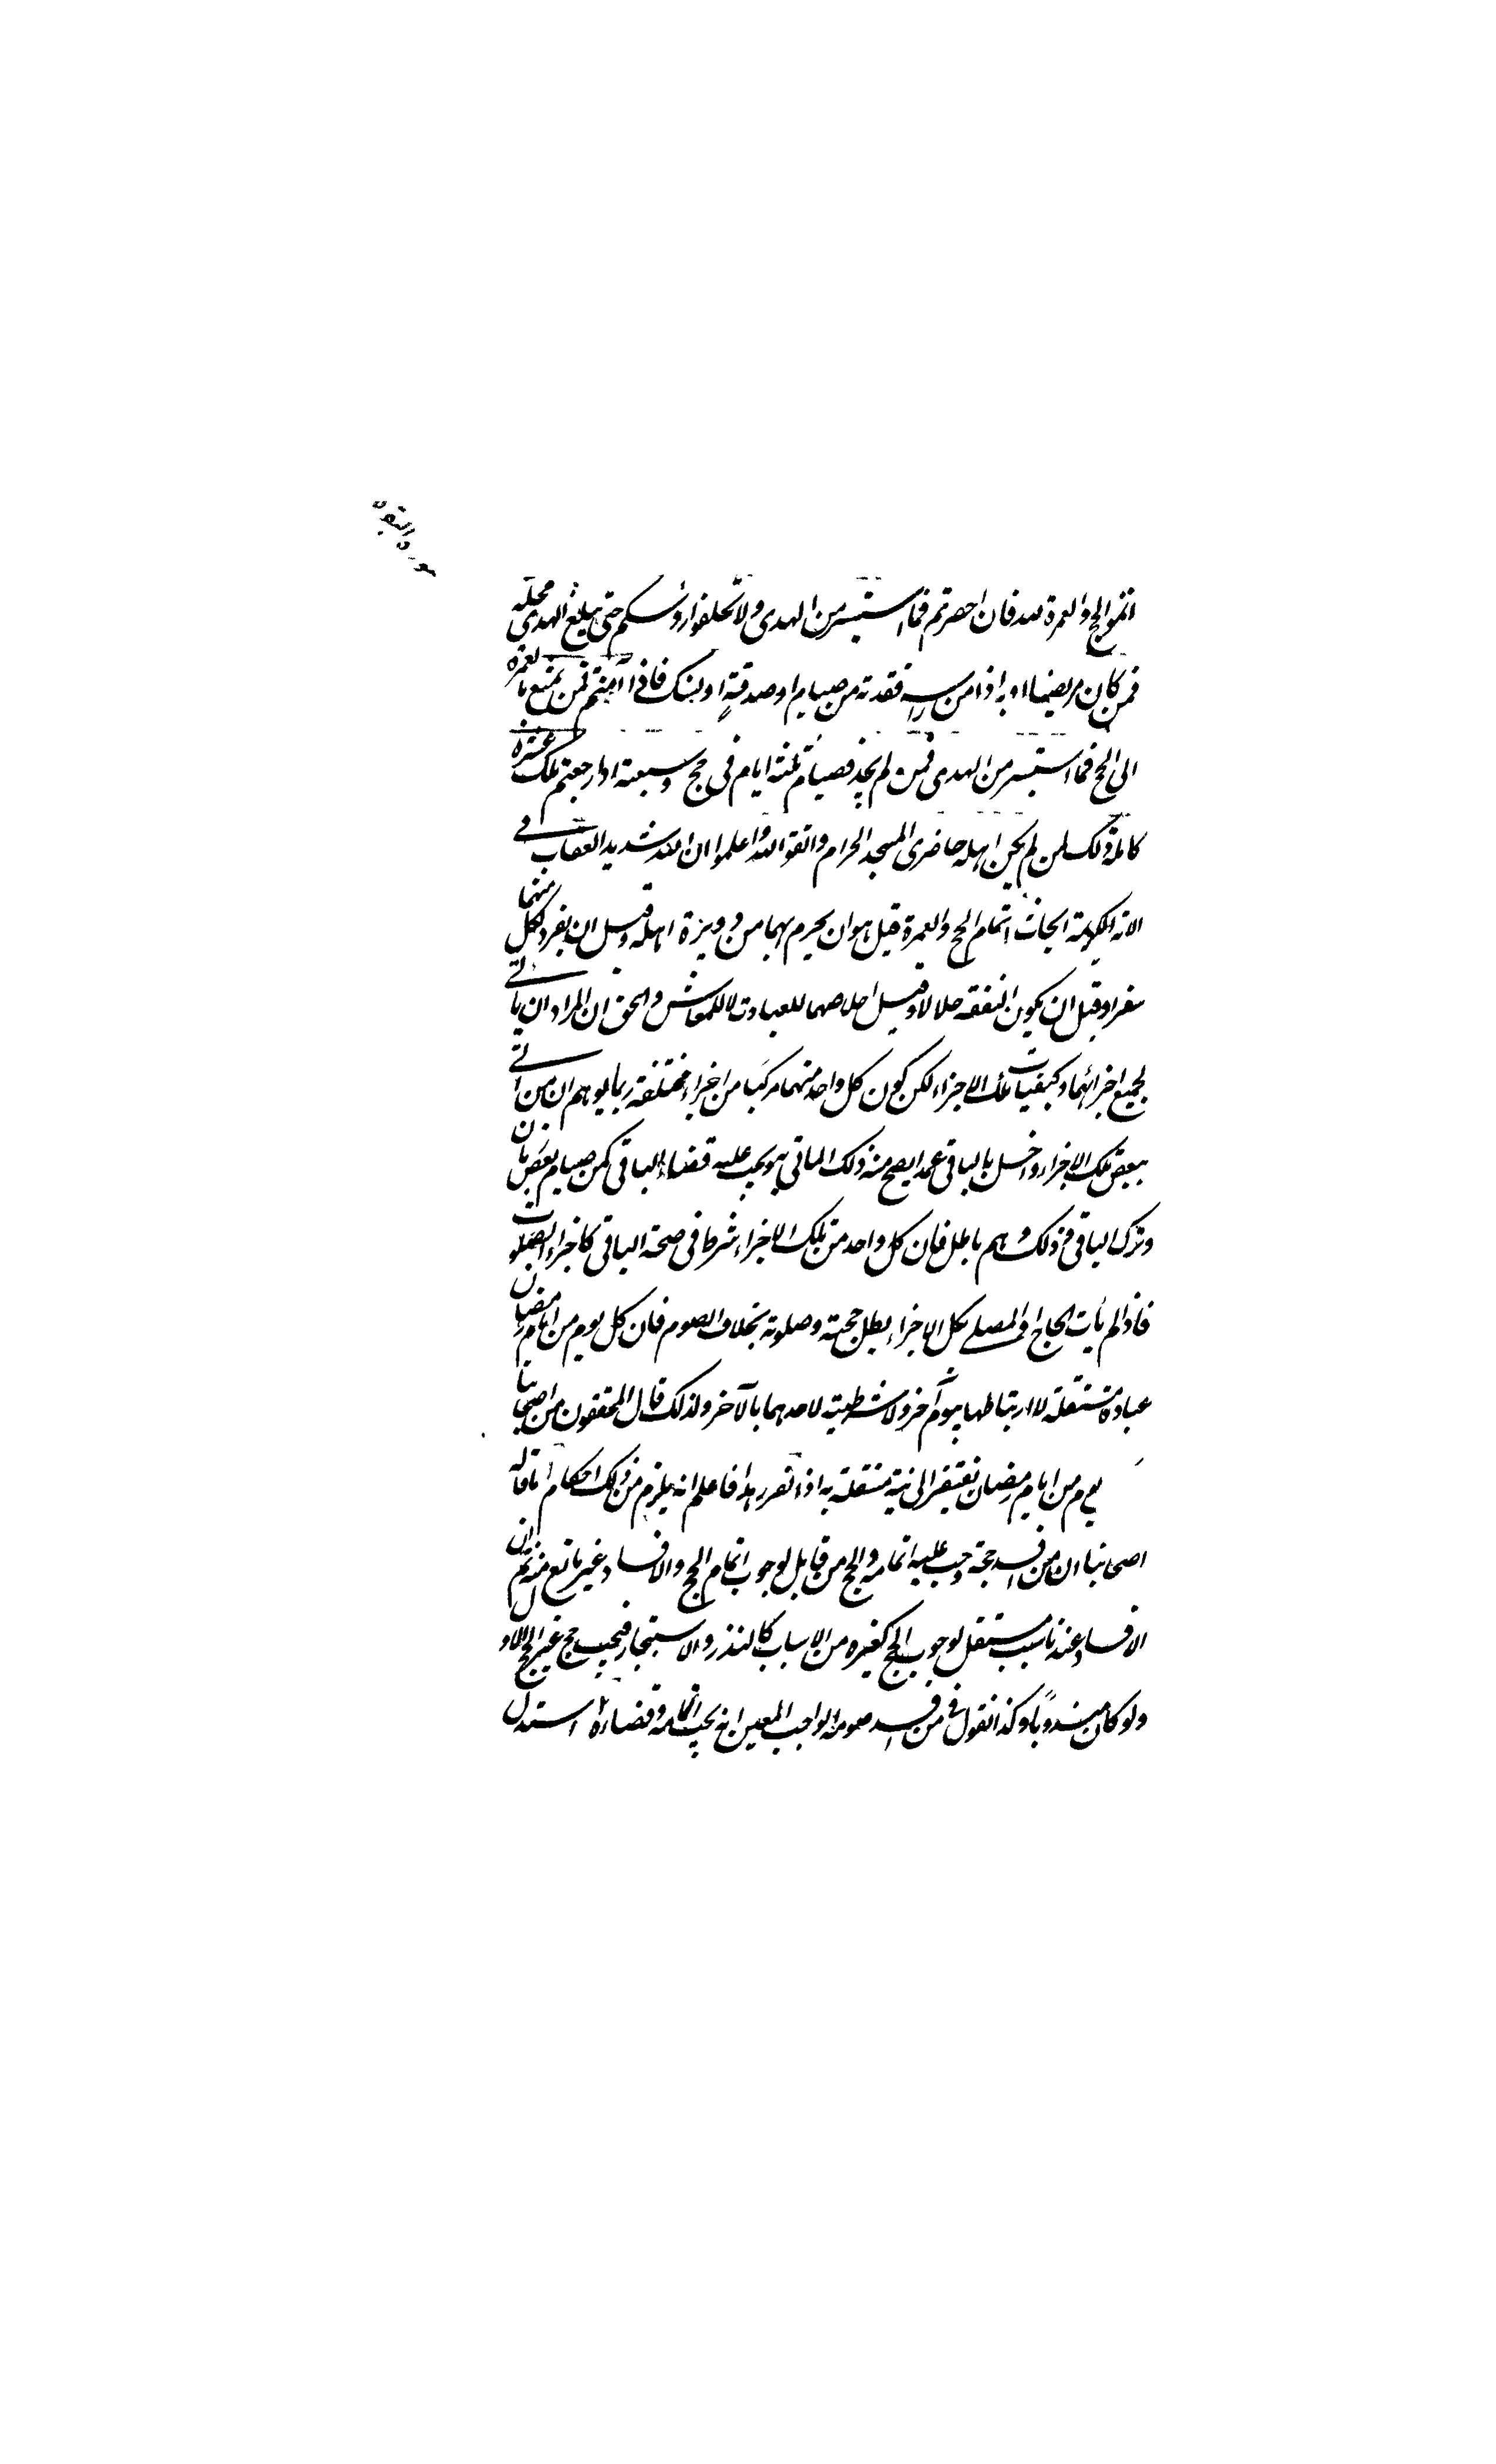 سورة البقرة
اتموا الحج والعمرة لله فان احصرتم فما استيسر من الهدى ولا تحلقوا رؤسكم حتى يبلغ الهدى محله
فمن كان مريضا او به اذا من راسه ففدية من صيام او صدقةٍ او نسك فاذا آمنتم فمن تمتع بالعمرة
الى الحج فما استيسر من الهدى فمن لم يجد فصيام ثلثة ايام فى حج وسبعة اذا رجعتم تلك عشرة
كاملة ذلك لمن لم يكن اهله حاضرى المسجد الحرام واتقوا الله واعلموا ان الله شديد العقاب فى
الاية الكريمة ابحاث اتمام الحج والعمرة قيل هو ان يحرم بهما من دويرة اهله وقيل ان يفرد لكل منهما
سفرا وقيل ان يكون النفقه حلالا وقيل اخلاصهما للعبادت لا للمعاش والحق ان المراد ان ياتى
بجميع اجزائهما وكيفيات تلك الاجزاء لكن كون كل واحد منهما مركبا من اجزاء مختلفة ربما يوهم ان من اتى
ببعض تلك الاجزاء واخل بالباقى عمدا يصح منه ذلك الماتى به ويجب عليه قضاء الباقى كمن صيام بعض رمضان
وترك الباقى فذلك وهم باطل فان كل واحد من تلك الاجزاء شرط فى صحة الباقى كاجزاء الصلوة
فاذا لم يأت الحاج او المصلى بكل الاجزاء يبطل حجته وصلوته بخلاف الصوم فان كل يوم من ايام رمضان
عبادة مستقلة لا ارتباط لها بيوم آخر ولا شرطية لاحدهما بالآخر ولذلك قال المحققون من اصحابنا
يوم من ايام رمضان يفتقر الى نية مستقلة به اذا تقرر هذا فاعلم انه يلزم من ذلك احكام ا ما قاله
اصحابنا ان من افسد حجة وجب عليه اتمامه والحج من قابل لوجوب اتمام الحج والافساد غير مانع منه ثم ان
الافساد عندنا سبب مستقل لوجوب الحج كغيره من الاسباب كالنذر والاستيجار فيجب حج غير الحج الاول
ولو كان مندوباً وكذا نقول فى من افسد صومه الواجب المعين انه يجب اتمامه وقضاءه استدل